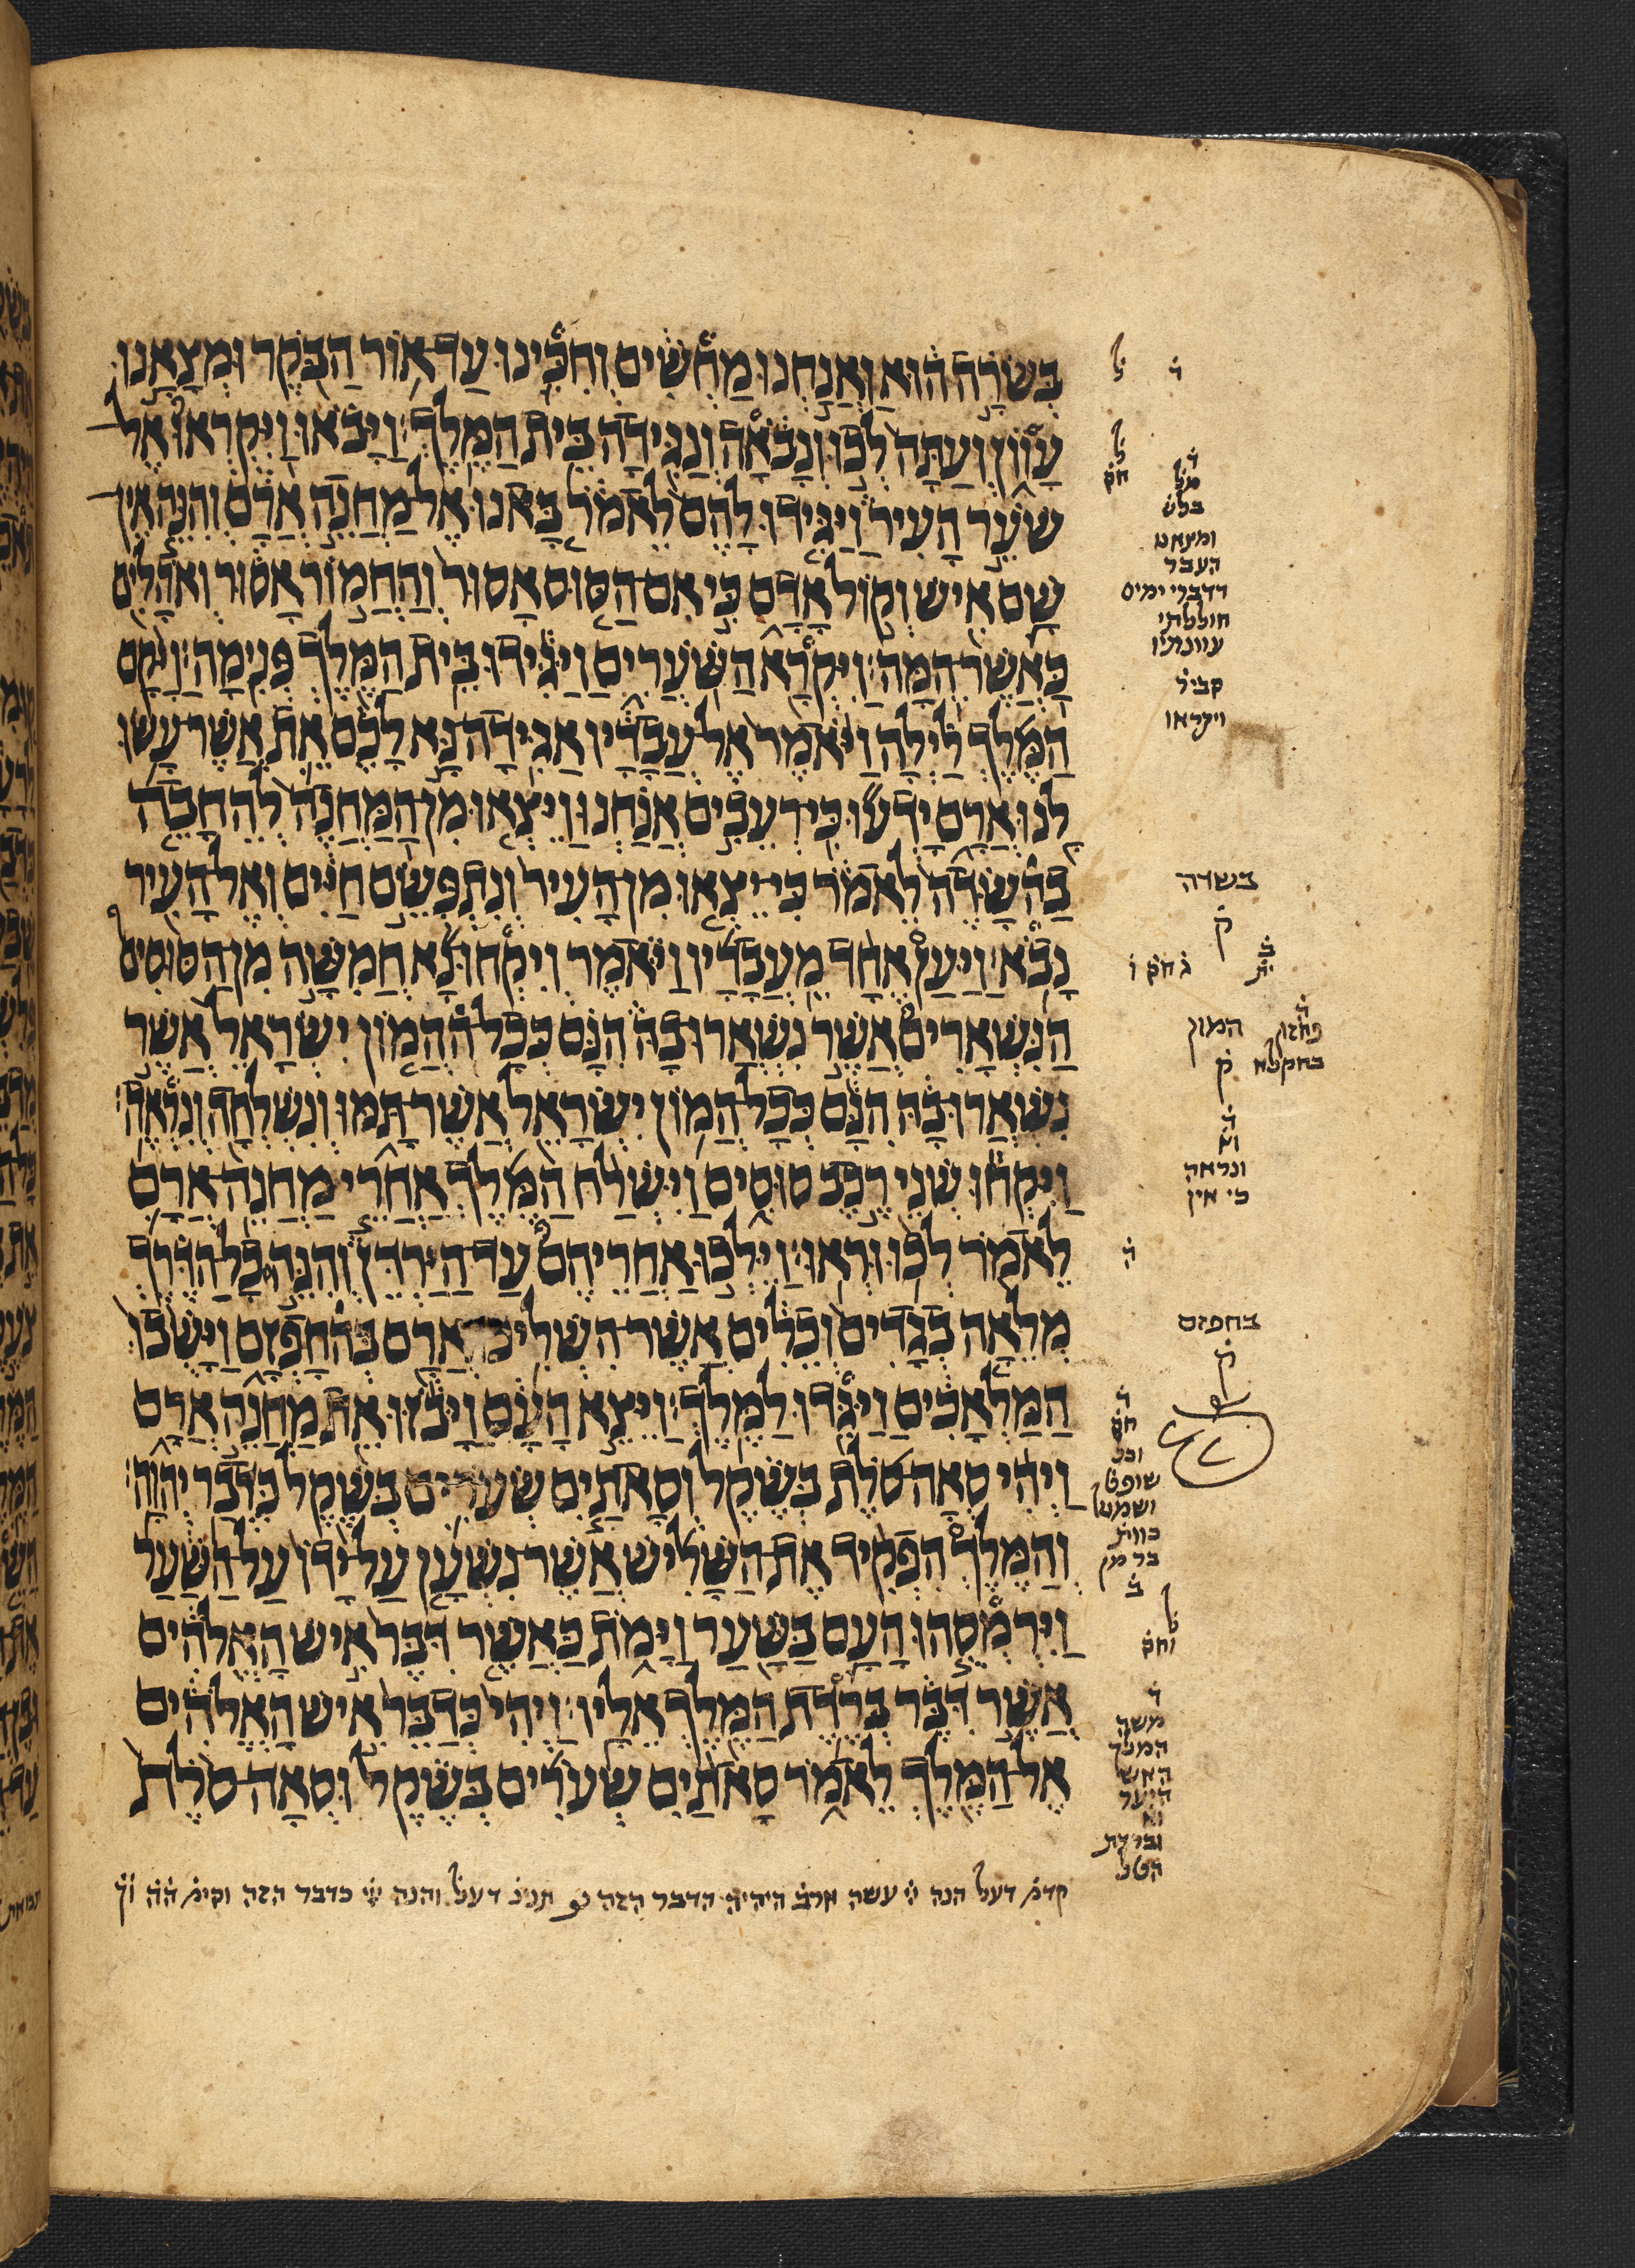 בְּשֹׂרָה הוּא וַאֲנַחְנוּ מַחְשִׁים וְחִכִּינוּ עַד־אוֹר הַבֹּקֶר וּמְצָאָנוּ
עָווֹן וְעַתָּה לְכוּ וְנָבֹאָה וְנַגִּידָה בֵּית הַמֶּלֶךְ׃ וַיָּבֹאוּ וַיִּקְרְאוּ אֶל־
שֹׁעֵר הָעִיר וַיַּגִּידוּ לָהֶם לֵאמֹר בָּאנוּ אֶל־מַחֲנֵה אֲרָם וְהִנֵּה אֵין־
שָׁם אִישׁ וְקוֹל אָדָם כִּי אִם־הַסּוּס אָסוּר וְהַחֲמוֹר אָסוּר וְאֹהָלִים
כַּאֲשֶׁר־הֵמָּה׃ וַיִּקְרָא הַשֹּׁעֲרִים וַיַּגִּידוּ בֵּית הַמֶּלֶךְ פְּנִימָה׃ וַיָּקָם
הַמֶּלֶךְ לַיְלָה וַיֹּאמֶר אֶל־עֲבָדָיו אַגִּידָה־נָּא לָכֶם אֵת אֲשֶׁר־עָשׂוּ
לָנוּ אֲרָם יָדְעוּ כִּי־רְעֵבִים אֲנַחְנוּ וַיֵּצְאוּ מִן־הַמַּחֲנֶה לְהֵחָבֵה
בַהשָּׂדֶה לֵאמֹר כִּי־יֵצְאוּ מִן־הָעִיר וְנִתְפְּשֵׂם חַיִּים וְאֶל־הָעִיר
נָבֹא׃ וַיַּעַן אֶחָד מֵעֲבָדָיו וַיֹּאמֶר וְיִקְחוּ־נָא חֲמִשָּׁה מִן־הַסּוּסִים
הַנִּשְׁאָרִים אֲשֶׁר נִשְׁאֲרוּ־בָהּ הִנָּם כְּכָל־הַהֲמוֹן יִשְׂרָאֵל אֲשֶׁר
נִשְׁאֲרוּ־בָהּ הִנָּם כְּכָל־הֲמוֹן יִשְׂרָאֵל אֲשֶׁר־תָּמּוּ וְנִשְׁלְחָה וְנִרְאֶה׃
וַיִּקְחוּ שְׁנֵי רֶכֶב סוּסִים וַיִּשְׁלַח הַמֶּלֶךְ אַחֲרֵי מַחֲנֵה־אֲרָם
לֵאמֹר לְכוּ וּרְאוּ׃ וַיֵּלְכוּ אַחֲרֵיהֶם עַד־הַיַּרְדֵּן וְהִנֵּה כָל־הַדֶּרֶךְ
מְלֵאָה בְגָדִים וְכֵלִים אֲשֶׁר־הִשְׁלִיכוּ אֲרָם בְּהחָפְזָם וַיָּשֻׁבוּ
הַמַּלְאָכִים וַיַּגִּדוּ לַמֶּלֶךְ׃ וַיֵּצֵא הָעָם וַיָּבֹזּוּ אֵת מַחֲנֵה אֲרָם
וַיְהִי סְאָה־סֹלֶת בְּשֶׁקֶל וְסָאתַיִם שְׂעֹרִים בְּשֶׁקֶל כִּדְבַר יְהוָה׃
וְהַמֶּלֶךְ הִפְקִיד אֶת־הַשָּׁלִישׁ אֲשֶׁר־נִשְׁעָן עַל־יָדוֹ עַל־הַשַּׁעַר
וַיִּרְמְסֻהוּ הָעָם בַּשַּׁעַר וַיָּמֹת כַּאֲשֶׁר דִּבֶּר אִישׁ הָאֱלֹהִים
אֲשֶׁר דִּבֶּר בְּרֶדֶת הַמֶּלֶךְ אֵלָיו׃ וַיְהִי כְּדַבֵּר אִישׁ הָאֱלֹהִים
אֶל־הַמֶּלֶךְ לֵאמֹר סָאתַיִם שְׂעֹרִים בְּשֶׁקֶל וּסְאָה־סֹלֶת
ל
ד
ל
חס
ומצאנו
העבר
דדברי ימים
חוללתי
עוונתיו
קביל
ויקראו
בשדה
ק
המון
ק
ונראה
כי אין
ה
בחפזם
ק
וכל
שופט
ל
וחס
משה
המלך
היער
הטל
הדבר הזה
והנה
כדבר הזה